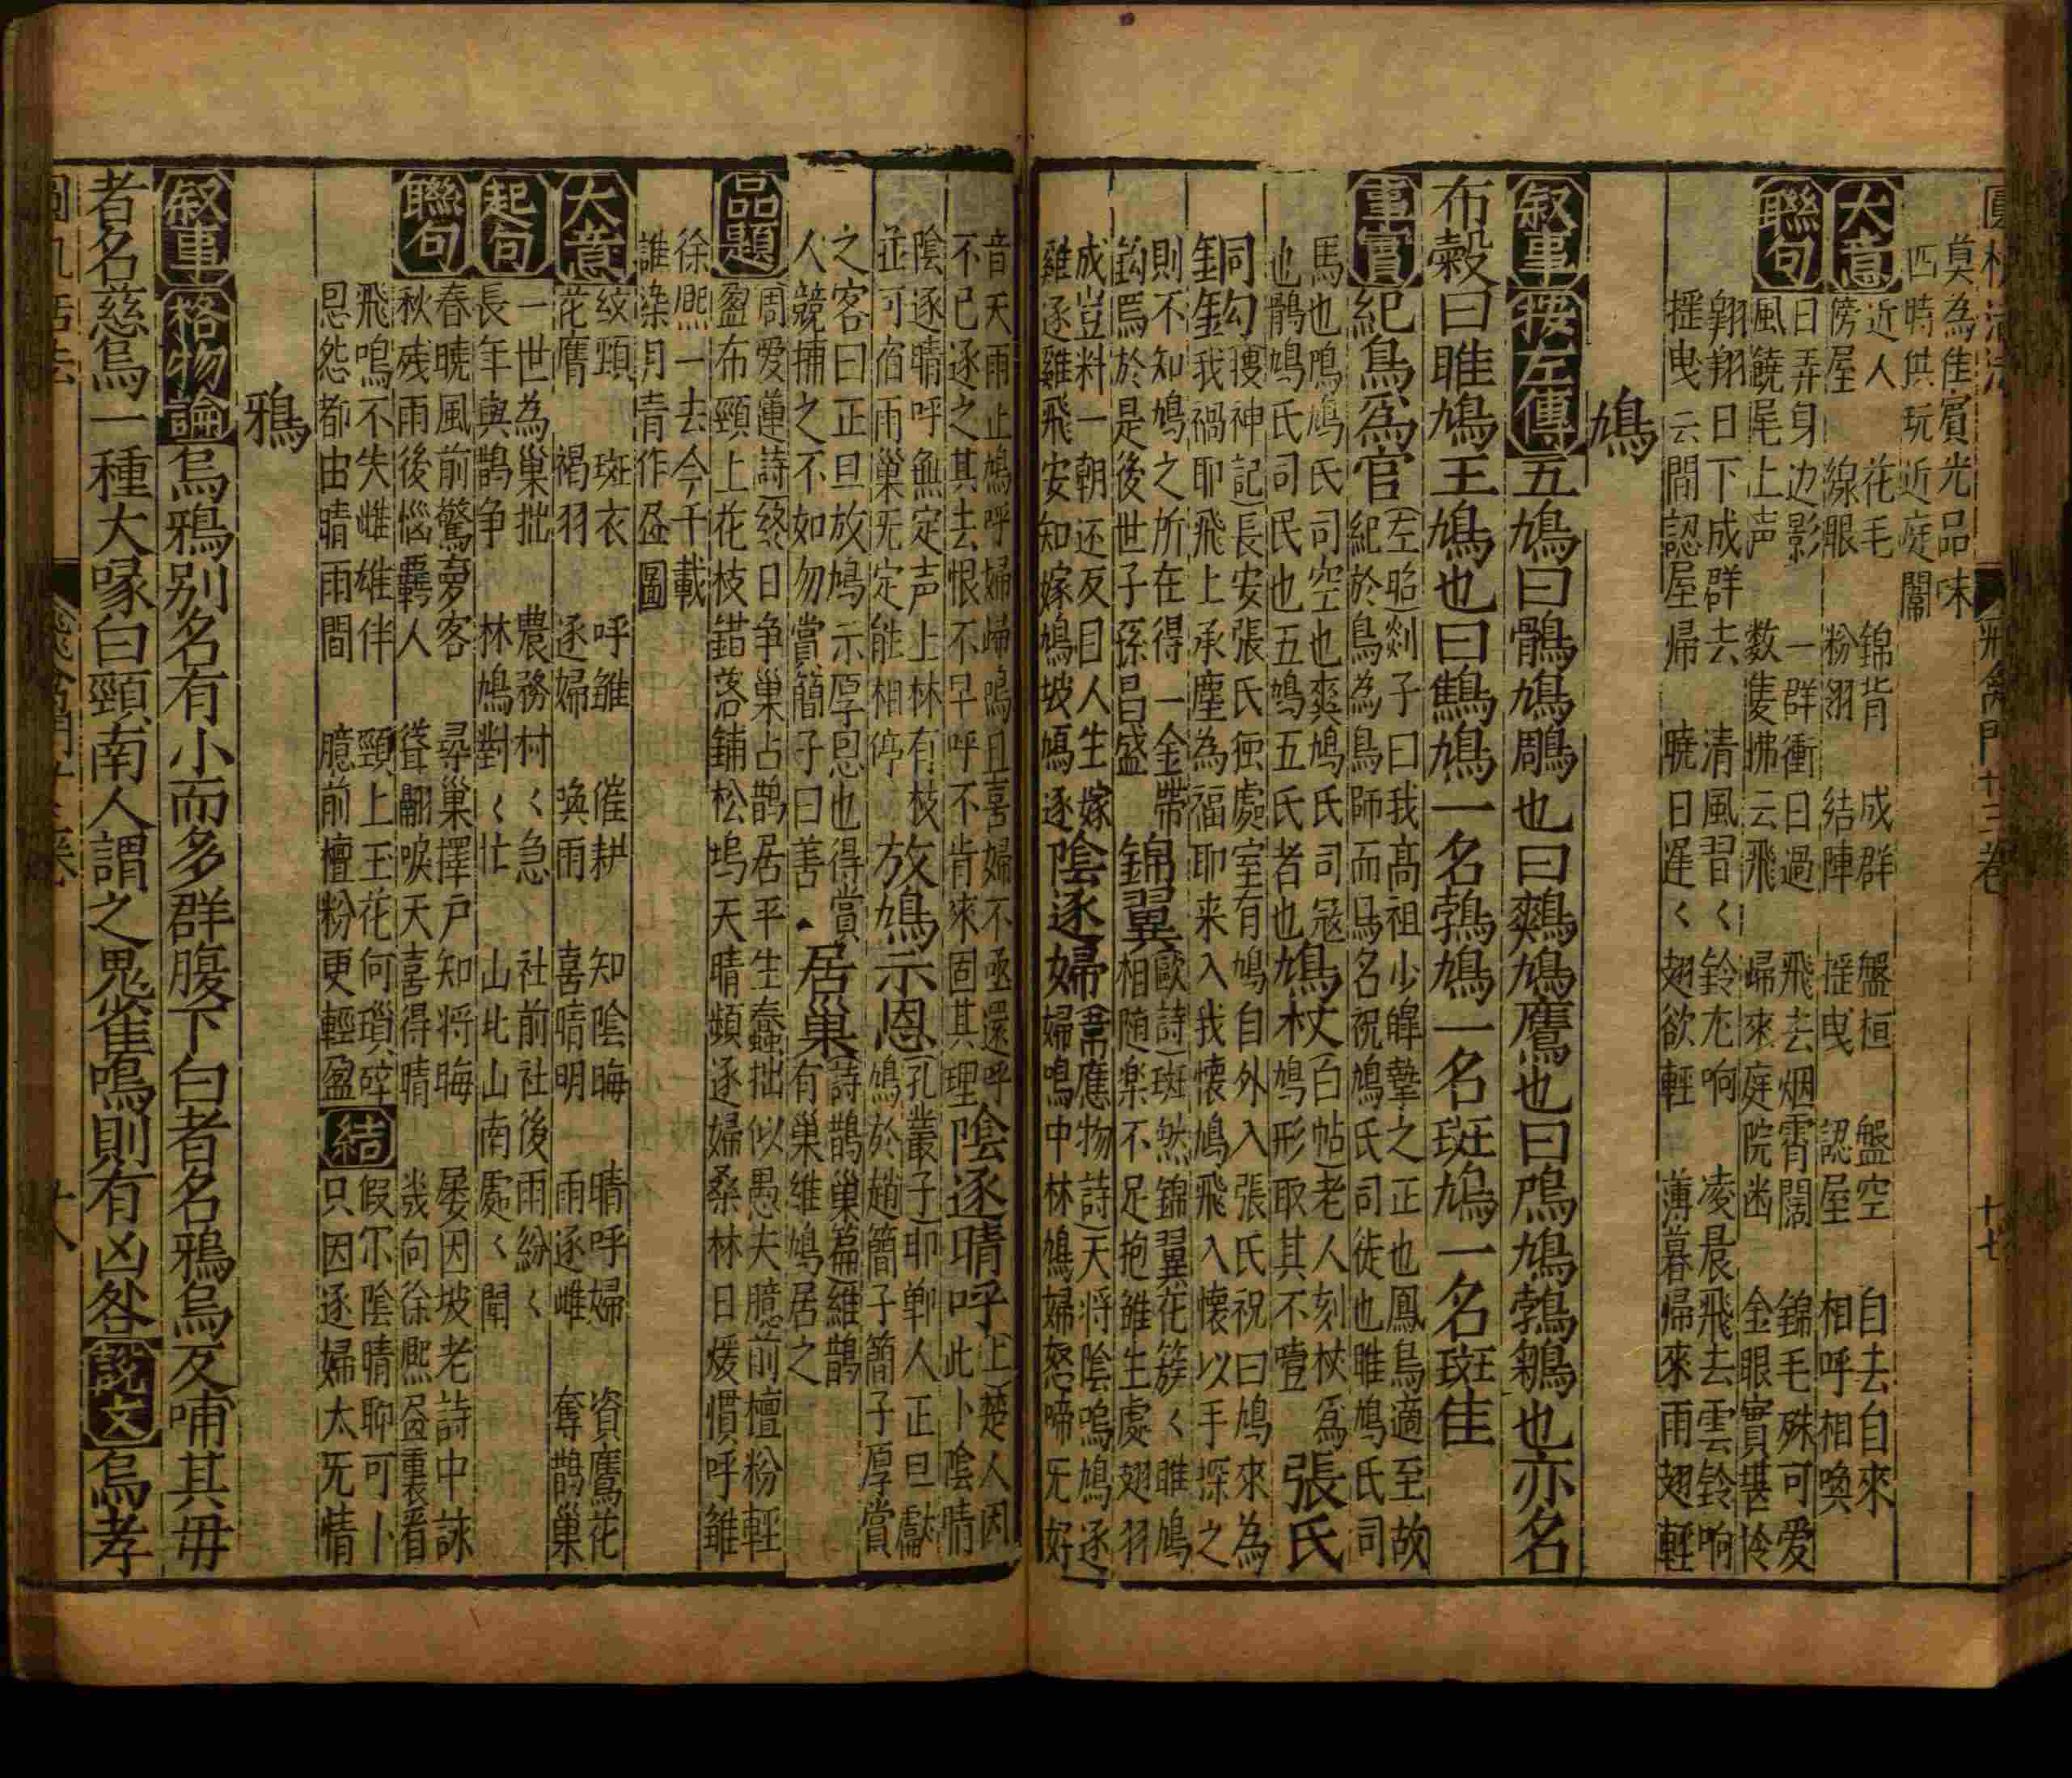 莫為佳賓光品味
四時供玩近庭闈
大意
近人 花毛 錦背 成群 盤桓 盤空 自去自來
傍屋 線眼 粉翅 結陣 摇曳 認屋 相呼相喚
聯句
日弄身边影 一群衝日過 飛去烟霄闊 錦毛殊可爱
風饒尾上声 数隻拂云飛 歸來庭院幽 金眼實甚怜
翱翔日下成群去 清風習〱鈴尨响 凌晨飛去雲鈴响
摇曳云間認屋帰 曉日遲〱翅欲輕 薄暮帰來雨翅輕
鳩
叙事 按左傳 五鳩曰鶻鳩鵰也曰鷞鳩鷹也曰鳲鳩鵓鴣也亦名
布穀曰雎鳩王鳩也曰鷦鳩一名鵓鳩一名斑鳩一名斑隹
事實 紀鳥為官
(左昭)剡子曰我高祖少皥摯之正也鳳鳥適至故
紀於鳥為鳥師而鳥名祝鳩氏司徒也雎鳩氏司
馬也鳲鳩氏司空也爽鳩氏司冦
也鶻鳩氏司民也五鳩五氏者也
鳩杖
(百帖)老人刻杖為
鳩形取其不噎
張氏
同勾
(搜神記)長安張氏独處室有鳩自外入張氏祝曰鳩來為
我禍耶飛上承塵為福耶来入我懷鳩飛入懷以手探之
則不知鳩之所在得一金帶
鈎焉於是後世子孫昌盛
錦翼
(歐詩)斑然錦翼花簇〱雎鳩
相随楽不足抱雛生處翅羽
成豈料一朝还反目人生嫁
雞逐雞飛安知嫁鳩坡鳩逐
陰逐婦
(韋應物詩)天将陰鳴鳩逐
婦鳴中林鳩婦怒啼旡好
音天雨止鳩呼婦歸鳴且喜婦不亟還呼
不已逐之其去恨不早呼不肯來固其理
陰逐晴呼
(上)楚人因
此卜陰晴
陰逐晴呼無定声上林有枝
並可宿雨巢旡定能相停
放鳩示恩
(孔叢子)邯郸人正旦獻
鳩於趙簡子簡子厚賞
之客曰正旦放鳩示厚恩也得賞
人競捕之不如勿賞簡子曰善
居巢
(詩鵲巢篇)維鵲
有巢維鳩居之
品題
周爱蓮詩(终日争巢占鵲居平生蠢拙似愚夫臆前檀粉輕
盈布頸上花枝錯落鋪松塢天晴頻逐婦桑林日煖慣呼雛
徐熈一去今千載
誰染月青作昼圖
大意
紋頸 斑衣 呼雛 催耕 知陰晦 晴呼婦 資鷹花
花膺 褐羽 逐婦 喚雨 喜晴明 雨逐雌 奪鵲巢
起句
一世為巢拙 農務村〱急 社前社後雨紛〱
長年與鵲争 林鳩對〱忙 山北山南處〱聞
聯句
春曉風前驚夢客 尋巢擇戶知将晦 屡因坡老詩中詠
秋残雨後惱羇人 聳翩唳天喜得晴 幾向徐熈昼裏看
飛鳴不失雌雄伴 頸上玉花何瑣碎
恩怨都由晴雨間 臆前檀粉更輕盈
結
假尔陰晴聊可卜
只因逐婦太旡情
鴉
叙事 格物論 烏鴉别名有小而多群腹下白者名鴉烏反哺其毋
者名慈烏一種大喙白頸南人謂之鬼雀鳴則有凶咎 說文 烏孝